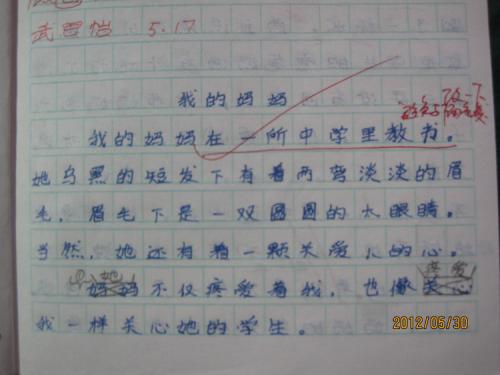 武思怡 5.17
我的妈妈
我的妈妈在一所中学里教书。
她乌黑的短发下有着两弯淡淡的眉
毛，眉毛下是一双圆圆的大眼睛。
当然，她还有着一颗关爱人的心。
她 疼爱
妈妈不仅疼爱着我，也像关心
我一样关心她的学生。
2012/05/30